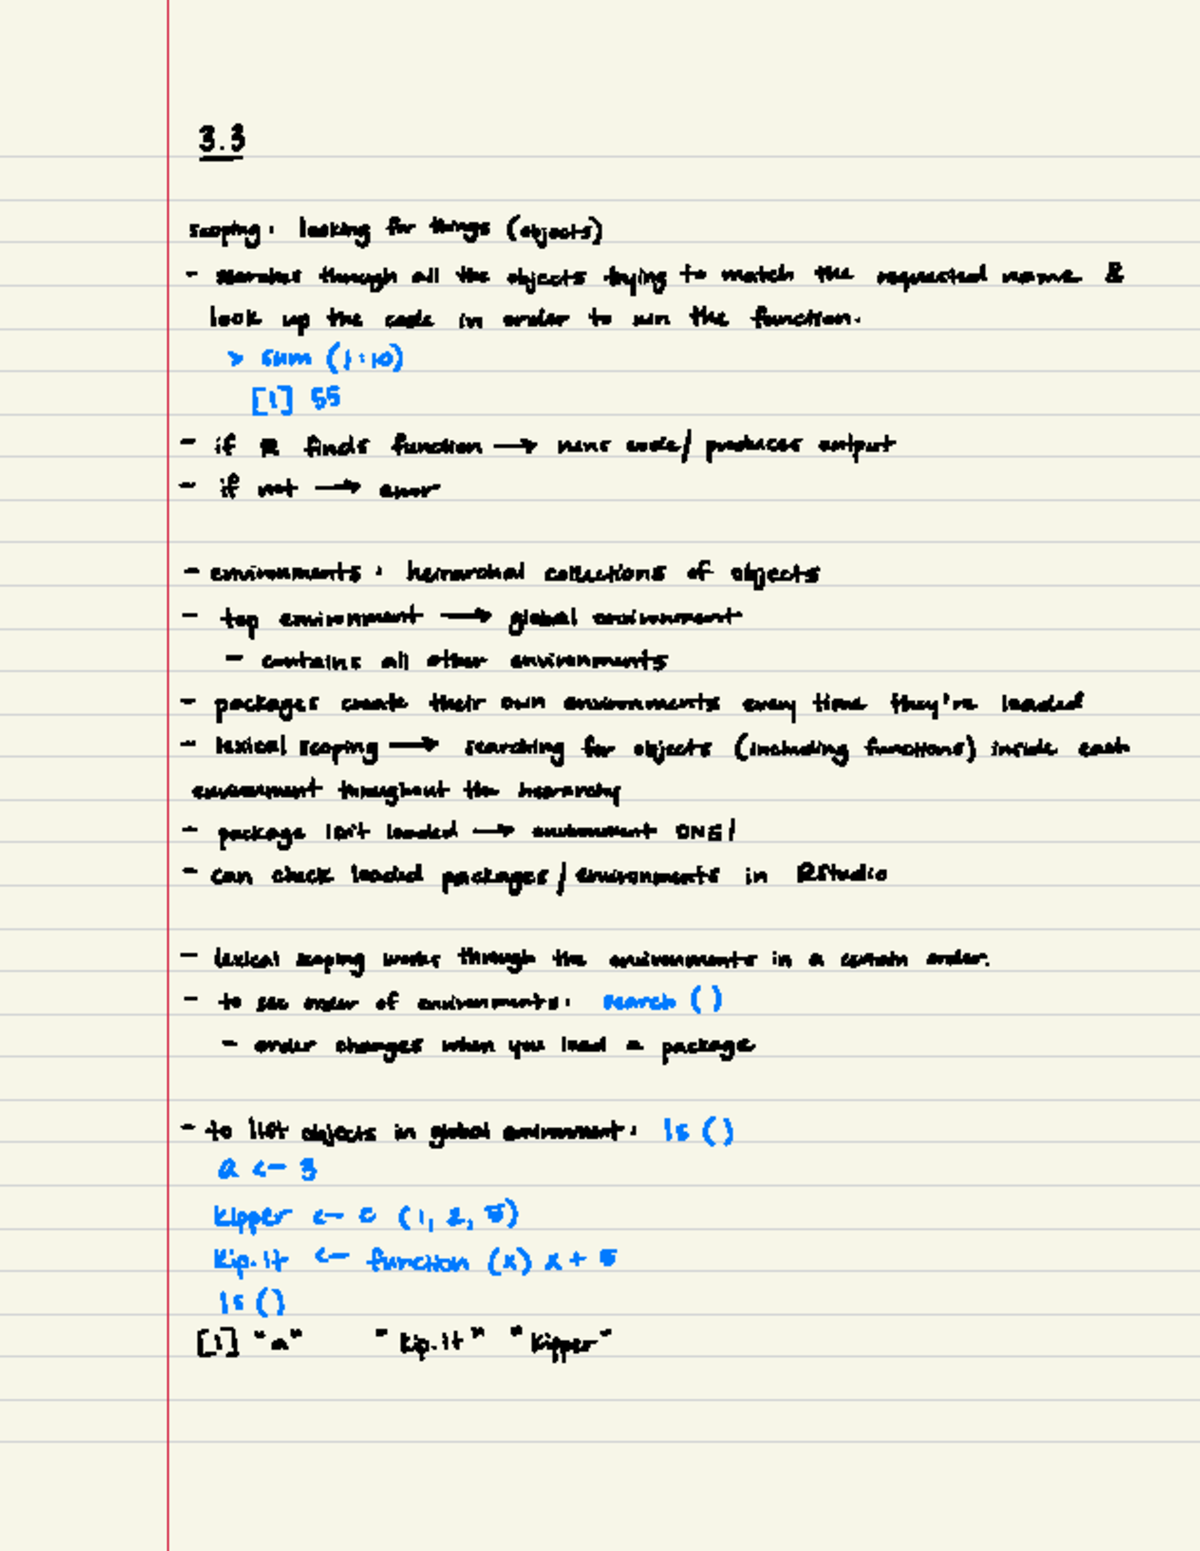 3.3
scoping: looking for things (objects)
- searches through all the objects trying to match the requested name &
look up the code in order to run the function.
> sum (1:10)
[1] 55
- if R finds function → runs code/ produces output
- if not → error
- environments: heirarchal collections of objects
- top environment → global environment
- contains all other environments
- packages create their own environments every time they're loaded
- lexical scoping → searching for objects (including functions) inside each
environment throughout the hierarchy
- package isn't loaded → environment DNE!
- can check loaded packages/environments in RStudio
- lexical scoping works through the environments in a certain order.
- to see order of environments: search ()
- order changes when you load a package
- to list objects in global environment: ls ()
a <- 3
kipper <- c (1, 2, 5)
kip.it <- function (x) x + 5
ls ()
[1] "a" "kip.it" "kipper"